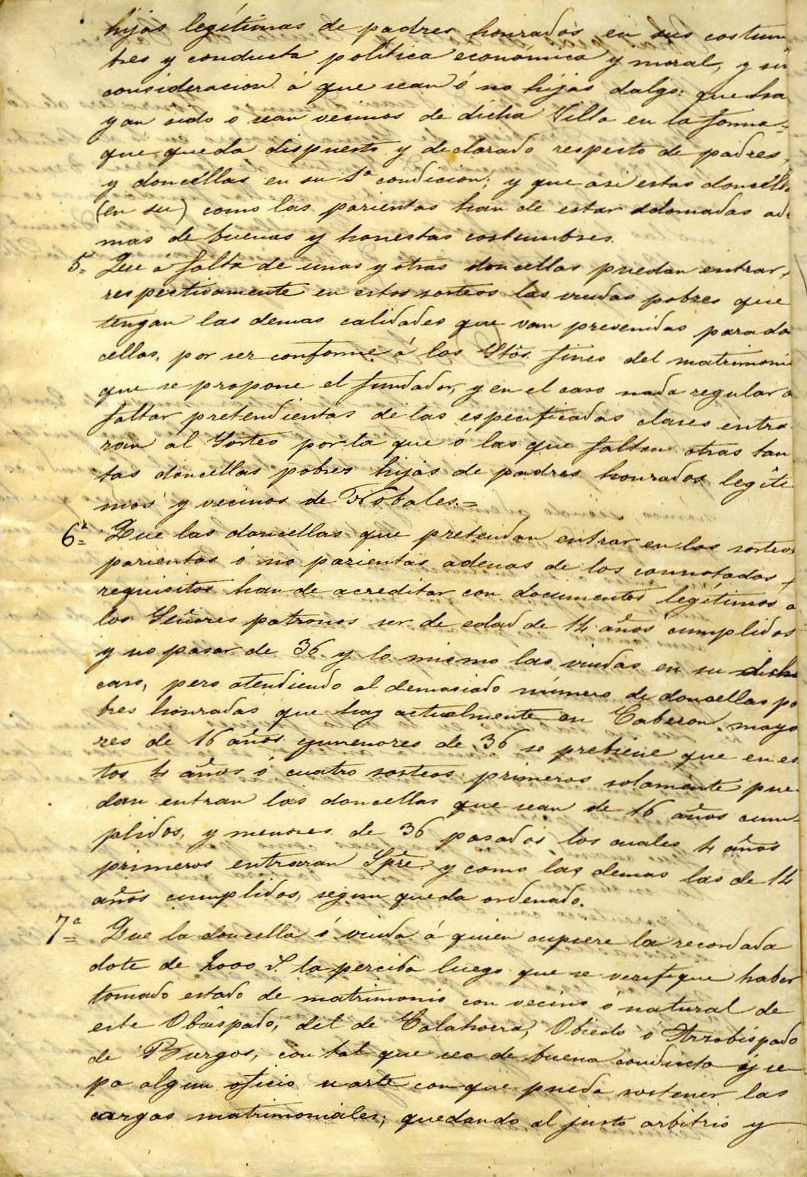 hijas legítimas de padres honrados en sus costum
bres y conducta política economica y moral, y sin
consideracion á que sean ó no hijas dalgo: que ha
yan sido o sean vecinos de dicha Villa en la forma
que queda dispuesto y declarado respecto de padres,
y doncellas en su 1ª condicion; y que asi estas doncell
(en su) como las parientas han de estar adornadas ade
mas de buenas y honestas costumbres.
5ª Que á falta de unas y otras doncellas puedan entrar
respectivamente en estos sorteos las viudas pobres que
tengan las demas calidades que van prevenidas para do
cellas, por ser conforme á los Stôs. fines del matrimoni
que se propone el fundador, y en el caso nada regular
faltar pretendientas de las especificadas clases entra
ran al Sorteo por la que o las que falten otras tan
tas doncellas pobres hijas de padres honrados legíti
mos y vecinos de Nobales.=
6ª Que las doncellas que pretendan entrar en los sorteos
parientas ó no parientas ademas de los connotados
requisitos han de acreditar con documentos legítimos a
los Señores patronos ser de edad de 14 años cumplidos
y no pasar de 36 y lo mismo las viudas en su dicho
caso, pero atendiendo al demasiado número de doncellas po
bres honradas que hay actualmente en Caberon mayo
res de 16 años ymenores de 36 se prebiene que en es
tos 4 años ó cuatro sorteos primeros solamente pue
dan entran las doncellas que sean de 16 años cum
plidos, y menores de 36 pasados los cuales 4 años
primeros entraran Spre y como las demas las de 14
años cumplidos, segun queda ordenado.
7ª Que la doncella ó viuda á quien cupiere la recordada
dote de 2000 S. la perciba luego que se verifique haber
tomado estado de matrimonio con vecino ó natural de
este Obispado, del de Calahorra, Obiedo o Arzobispado
de Burgos, con tal que sea de buena conducta y se
pa algun oficio u arte con que pueda sostener las
cargas matrimoniales; quedando al justo arbitrio y